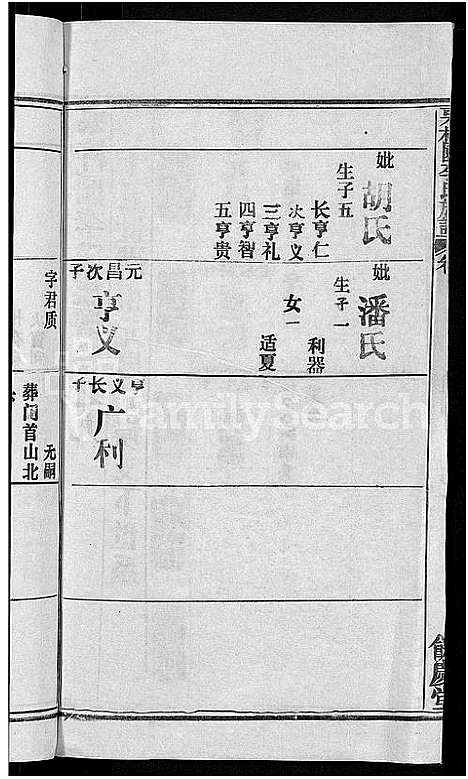 妣胡氏
生子五
长亨仁
次亨义
三亨礼
四亨智
五亨贵
妣潘氏
生子一
利器
女一
适夏
元昌次子
亨义
亨义长子
广利
字君质
无嗣
葬门首山北
FamilySearch